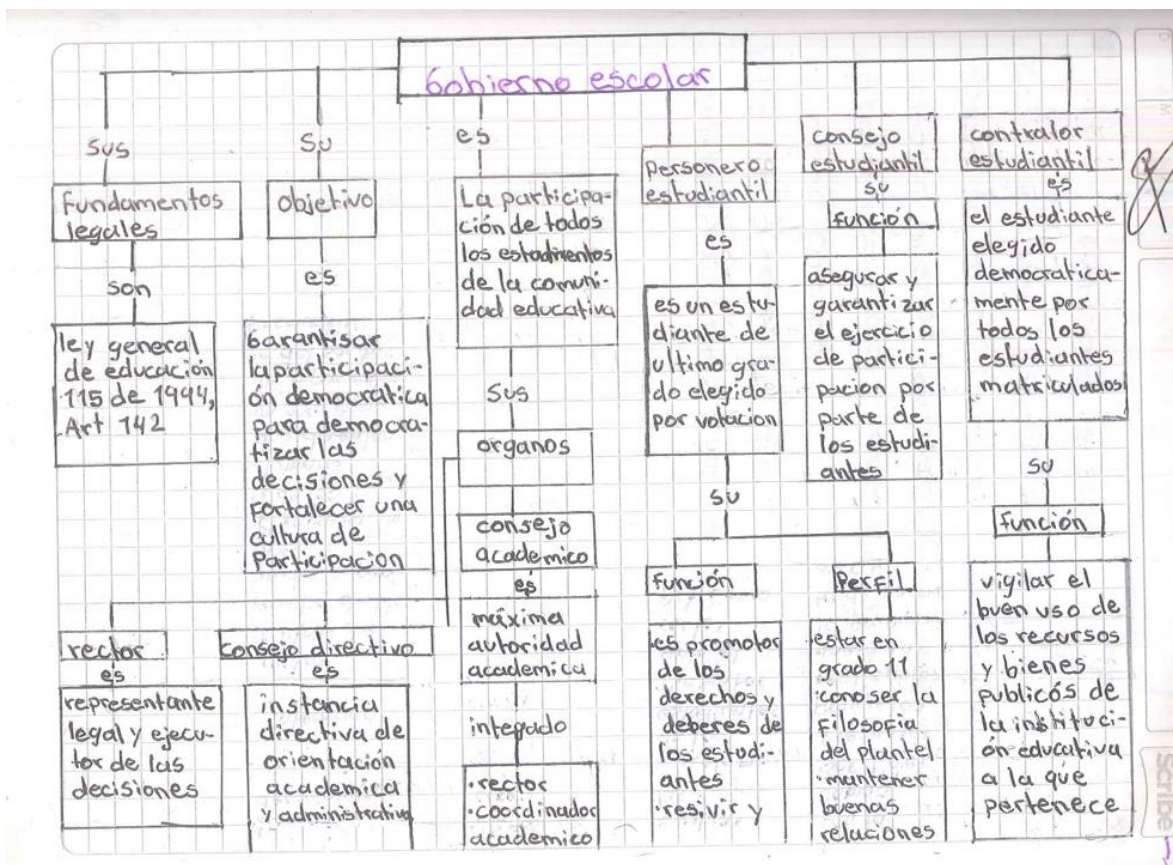 Gobierno escolar
sus
Fundamentos
legales
son
ley general
de educación
115 de 1994,
Art 142
su
objetivo
es
Garantisar
la participaci-
ón democratica
para democra-
tizar las
decisiones y
fortalecer una
cultura de
Participacion
es
La participa-
ción de todos
los estadimentos
de la comuni-
dad educativa
sus
organos
rector
es
representante
legal y ejecu-
tor de las
decisiones
Consejo directivo
es
instancia
directiva de
orientación
academica
y administrativa
consejo
academico
es
máxima
autoridad
academica
integado
·rector
·coordinador
academico
personero
estudiantil
es
es un estu-
diante de
ultimo gra-
do elegido
por votacion
su
función
·es promotor
de los
derechos y
deberes de
los estudi-
antes
·resivir y
Perfil
·estar en
grado 11
·conoser la
filosofia
del plantel
·mantener
buenas
relaciones
consejo
estudiantil
su
función
asegurar y
garantizar
el ejercicio
de partici-
pacion por
parte de
los estudi-
antes
contralor
estudiantil
es
el estudiante
elegido
democratica-
mente por
todos los
estudiantes
matriculados
su
función
vigilar el
buen uso de
los recursos
y bienes
publicós de
la instituci-
ón educativa
a la que
pertenece
Scribe